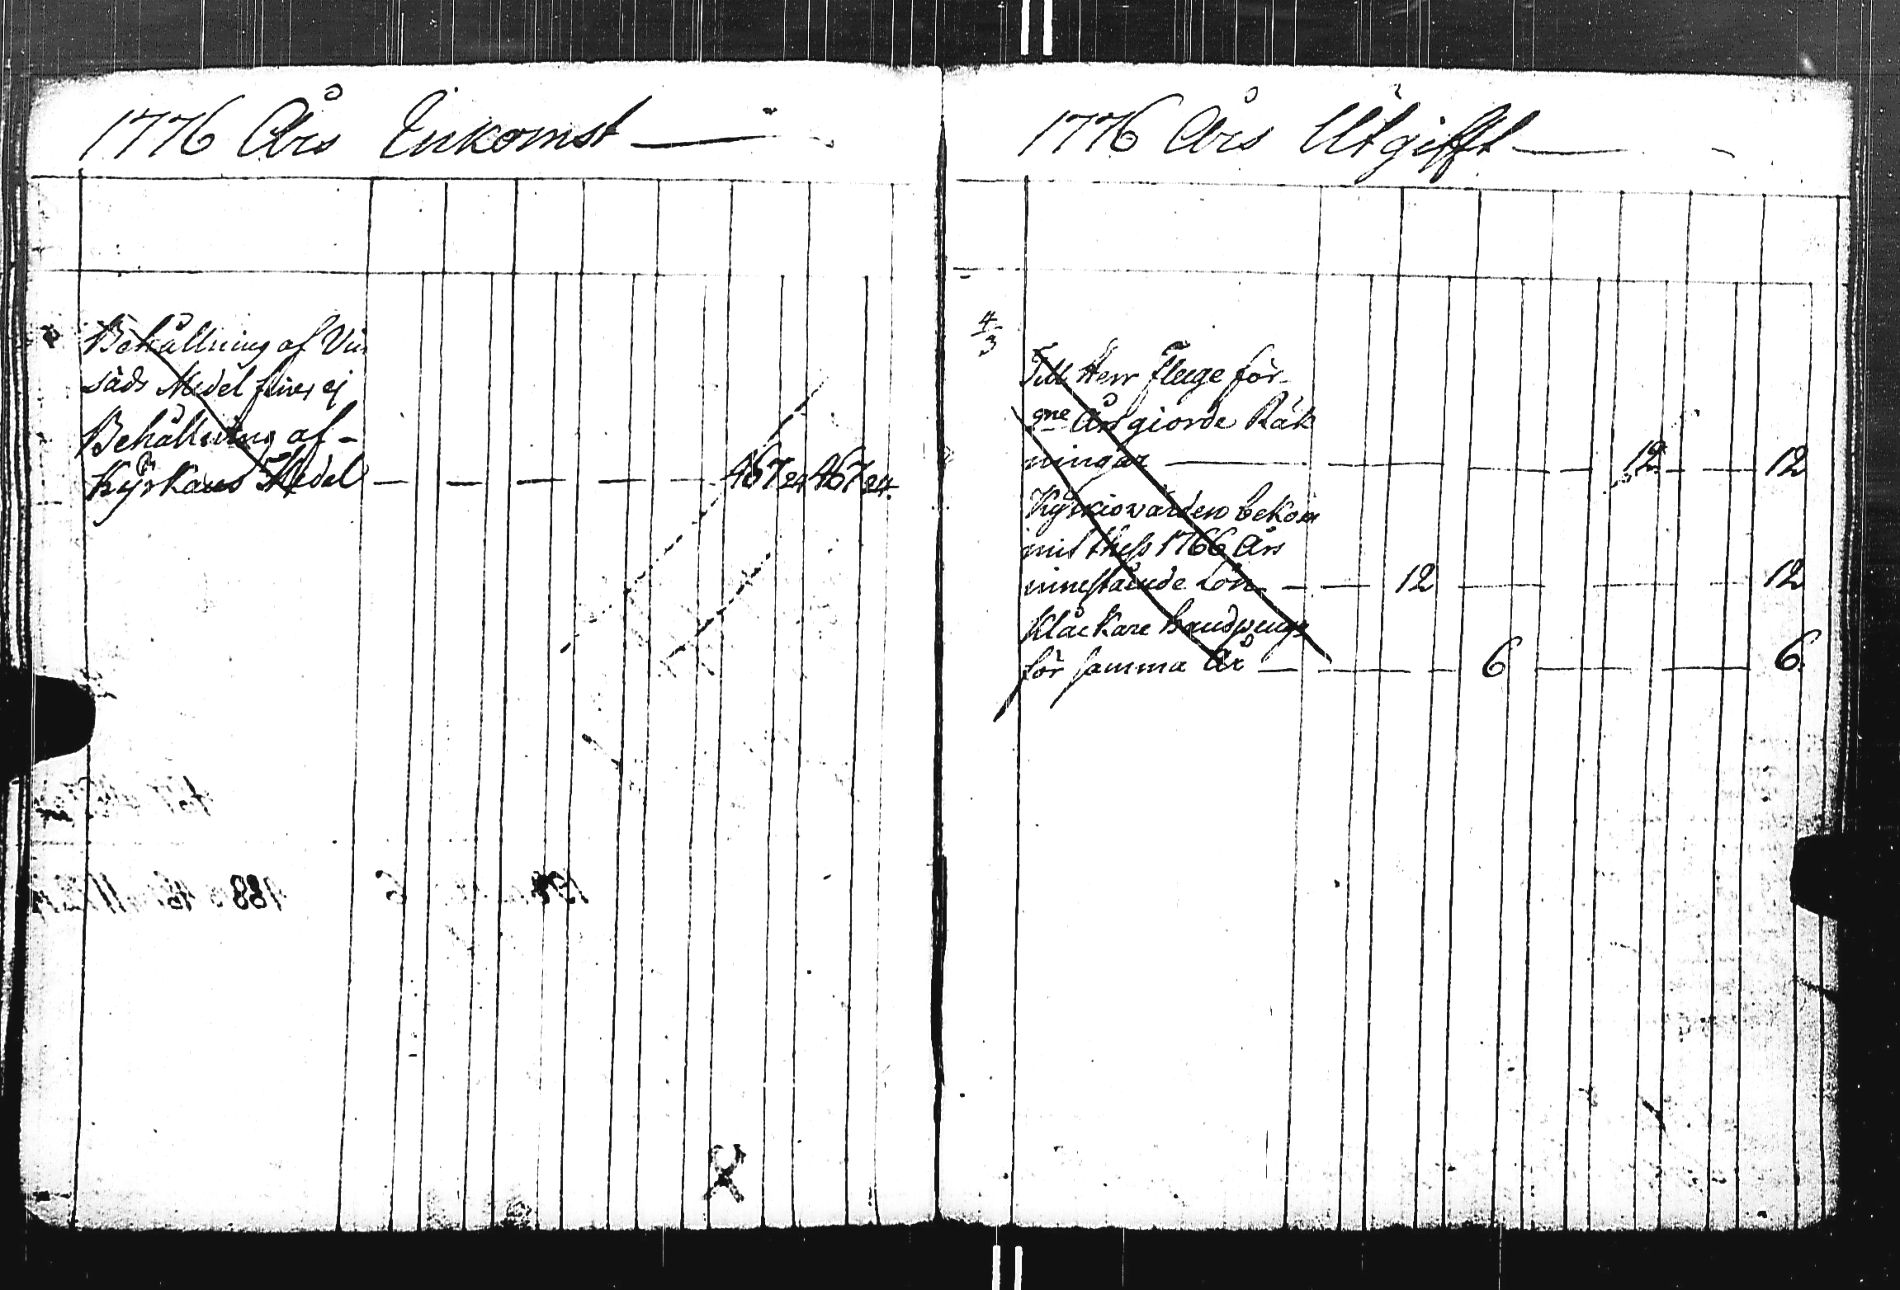 1776 Års Inkomst
Behållning af Vin
säds Medel finnes ej
Behållning af
Kyrkans Medel 467 24 467 24.
1776 Års Utgifft
4/3
Till Herr Fluge för
gne År giorde Räk
ningar 12 12
Kyrkiovärden bekom
mit thess 1766 Års
innestående Lön 12 12
Klåckare handpengr
för samma År 6 6.